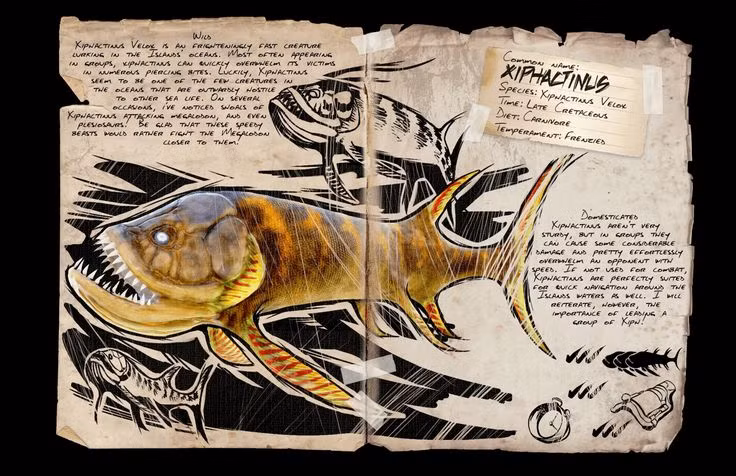 Wild
Xiphactinus Velox is an frighteningly fast creature
lurking in the Islands' oceans. Most often appearing
in groups, xiphactinus can quickly overwhelm its victims
in numerous piercing bites. Luckily, Xiphactinus
seem to be one of the few creatures in
the oceans that are outwardly hostile
to other sea life. On several
occasions, i've noticed shoals of
Xiphactinus attacking megalodon, and even
plesiosaurs! Be glad that these speedy
beasts would rather fight the Megalodon
closer to them!
Common name:
Xiphactinus
Species: Xiphactinus Velox
Time: Late Cretaceous
Diet: Carnivore
Temperament: Frenzied
Domesticated
Xiphactinus aren't very
sturdy, but in groups they
can cause some considerable
damage and pretty effortlessly
overwhelm an opponent with
speed. If not used for combat,
Xiphactinus are perfectly suited
for quick navigation around the
Islands waters as well. I will
reiterate, however, the
importance of leading a
group of Xiph!